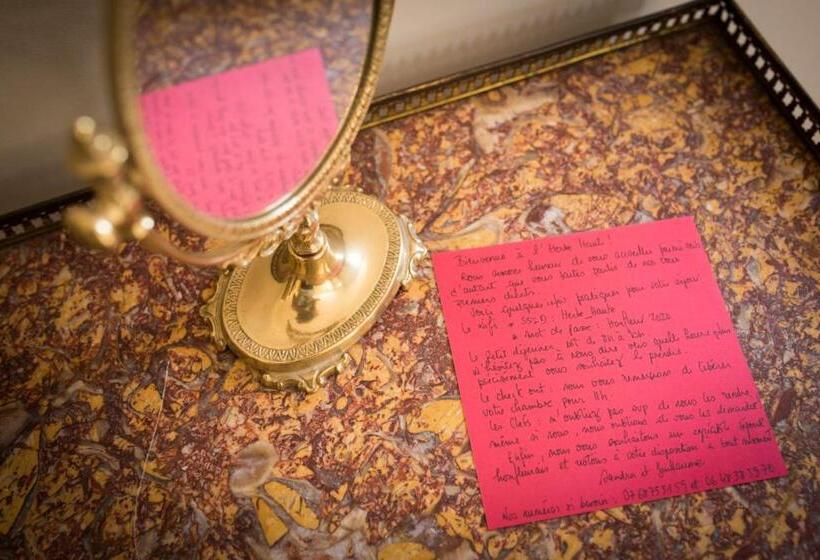 Bienvenue à l'Herbe Haute !
Nous sommes heureux de vous accueillir parmi
d'autant que vous faites partie de nos tous
premiers clients.
Voici quelques infos pratiques pour votre séjour
Le wifi * SSID : Herbe Haute
* Mot de passe : Honfleur 2020
Le Petit déjeuner est de
n'hésitez pas à nous dire vers quelle heure plus
précisément vous souhaitez le prendre.
Le check out : nous vous remercions de libérer
votre chambre pour 11h.
Les Clefs : n'oubliez pas svp de nous les rendre,
même si nous, nous oublions de vous les demander !
Enfin, nous vous souhaitons un excellent séjour
honfleurais et restons à votre disposition à tout moment
Sandra et Guillaume
Nos numéros si besoin : et